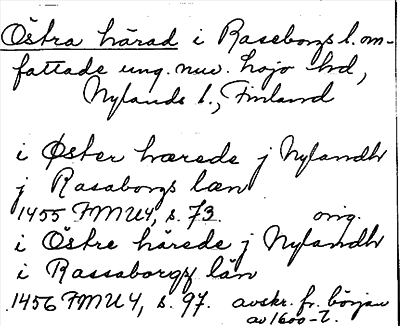 Östra härad i Raseborgs l. om-
fattade ung. nuv. Lojo hd,
Nylands l., Finland
i Øster hærede j Nylandh
j Rasaborgs læn
1455 FMU4, s. 73. orig.
i Östre härede j Nylandh
i Rassaborgs län
1456 FMU 4, s. 97. avskr. fr. början
av 1600-t.